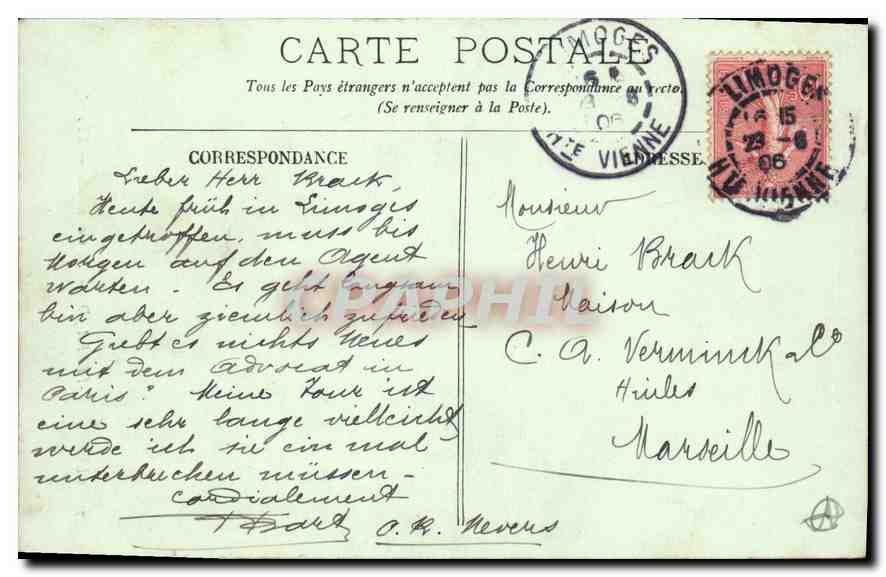 CARTE POSTALE
Tous les Pays étrangers n'acceptent pas la Correspondance au recto.
(Se renseigner à la Poste).
LIMOGES
06
HTE VIENNE
LIMOGES
16 15
23 - 6
06
HTE VIENNE
CORRESPONDANCE
ADRESSE
Lieber Herr Brack,
Heute früh in Limoges
eingetroffen, muss bis
Morgen auf den Agent
warten - Es geht langsam
bin aber ziemlich zufrieden
Giebt es nichts Neues
mit dem Advocat in
Paris? Meine Tour ist
eine sehr lange vielleicht
werde ich sie einmal
unterbrechen müssen -
cordialement
Nevers
Monsieur
Henri Brack
Maison
C. A. Verminck & Co
Huiles
Marseille
CPAPHIL